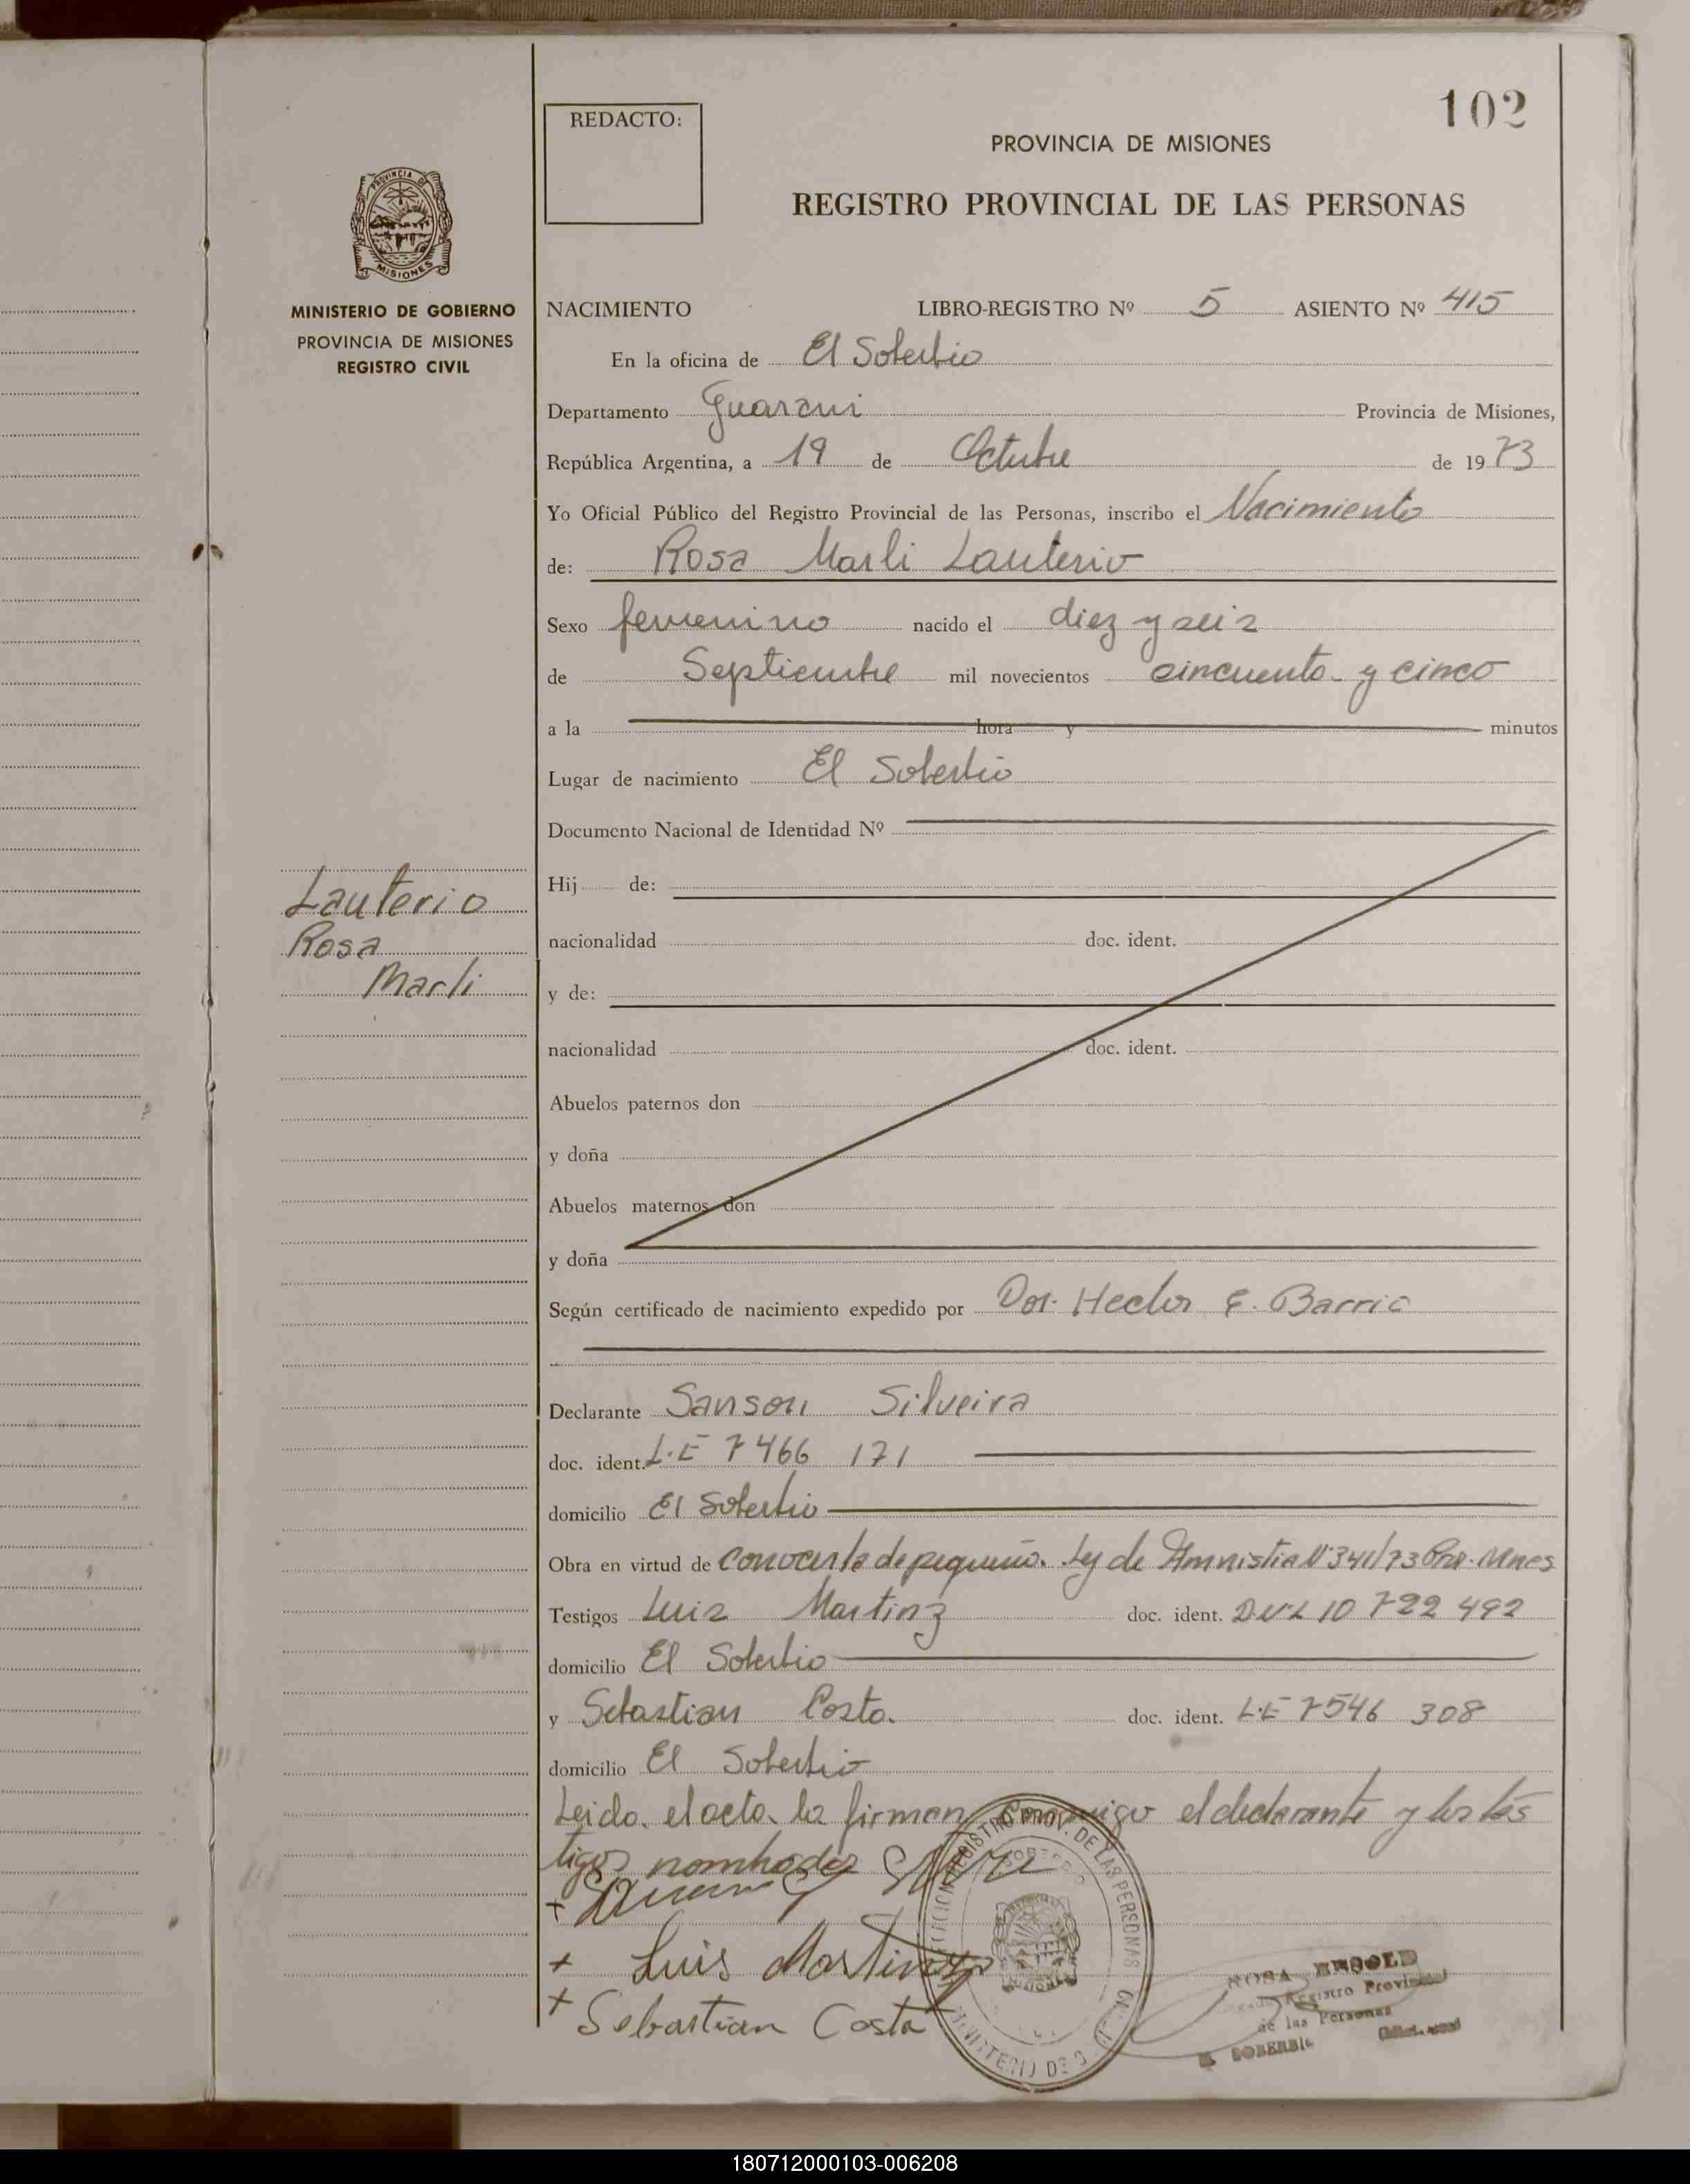 102
REDACTO:
PROVINCIA DE MISIONES
REGISTRO PROVINCIAL DE LAS PERSONAS
PROVINCIA DE
MISIONES
MINISTERIO DE GOBIERNO
PROVINCIA DE MISIONES
REGISTRO CIVIL
NACIMIENTO LIBRO-REGISTRO Nº 5 ASIENTO Nº 415
En la oficina de El Soberbio
Departamento Guarani Provincia de Misiones,
República Argentina, a 19 de Octubre de 1973
Yo Oficial Público del Registro Provincial de las Personas, inscribo el Nacimiento
de: Rosa Marli Lauterio
Sexo femenino nacido el diez y seis
de Septiembre mil novecientos cincuenta y cinco
a la hora y minutos
Lugar de nacimiento El Soberbio
Documento Nacional de Identidad Nº
Lauterio
Rosa
Marli
Hij de:
nacionalidad doc. ident.
y de:
nacionalidad doc. ident.
Abuelos paternos don
y doña
Abuelos maternos don
y doña
Según certificado de nacimiento expedido por Dor. Hector E. Barrio
Declarante Sanson Silveira
doc. ident. L.E 7466 171
domicilio El Soberbio
Obra en virtud de conocerla de pequeña. Ley de Amnistia Nº 341/73 Prov. Mnes
Testigos Luis Martinz doc. ident. DNI 10 722 492
domicilio El Soberbio
y Sebastian Costa. doc. ident. L.E 7546 308
domicilio El Soberbio
Leida el acta la firman conmigo el declarante y los tes
tigos nombrados
+
+ Luis Martinez
+ Sebastian Costa
REGISTRO PROV. DE LAS PERSONAS
MINISTERIO DE
ROSA
Registro Provincial
de las Personas
EL SOBERBIO
180712000103-006208